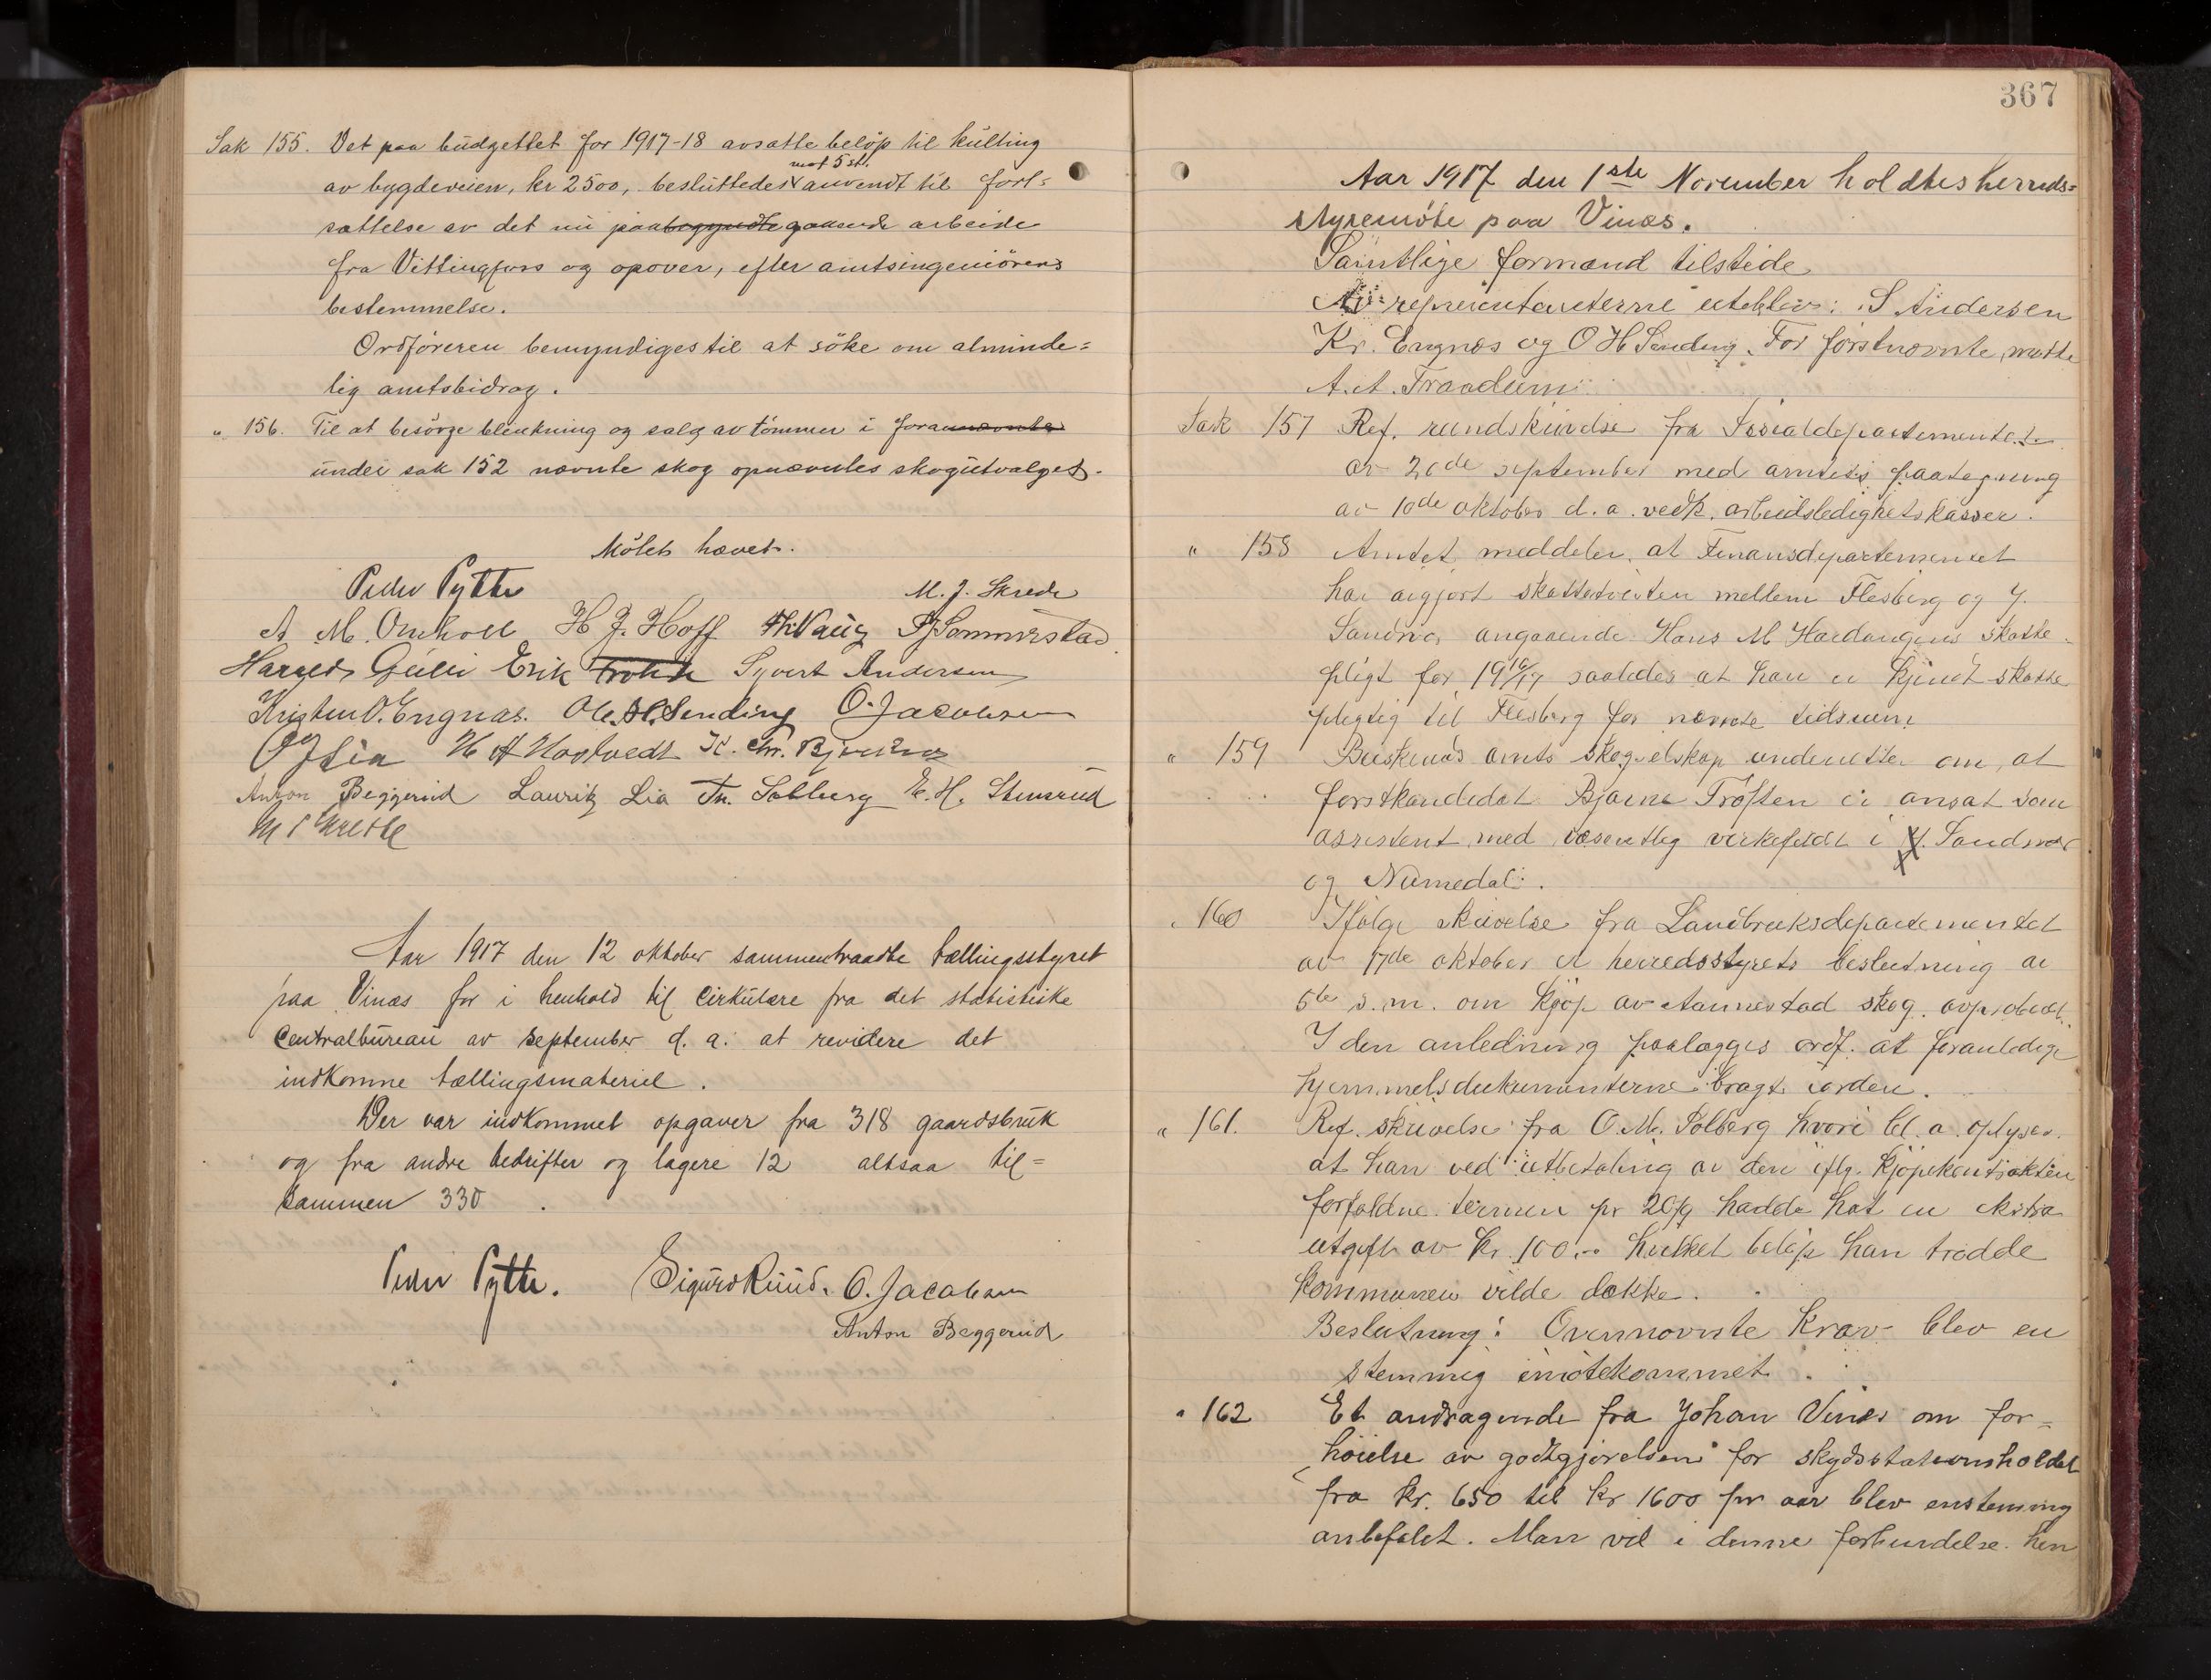 Sak 155. Det paa budgettet for 1917-18 avsatte beløp til kulting
mot 5 st.
av bygdeveien, kr 2500, besluttedes anvendt til fort=
sættelse av det nu paabegyndte gaaende arbeide
fra Vittingfoss og opover, efter amtsingeniørens
bestemmelse.
Ordføreren bemyndiges til at søke om alminde=
lig amtsbidrag.
" 156. Til at besørge blinkning og salg av tømmer i forannævnte
under sak 152 nævnte skog opnævntes skogutvalget.
Møtet hævet.
Peder Pytte M. J. Skrede
A. M. Omholt H J. Hoff Th. Vaug P J Sommerstad
Harald Gulli Erik Syvert Andersen
Kristen O. Engnæs. Ole H. Sending O. Jacobsen
O J Lia H A Hostvedt K. Chr.
Anton Beggerud Lauritz Lia Th. Solberg E. H. Stensrud
Aar 1917 den 12 oktober sammentraadte tællingsstyret
paa Vinæs for i henhold til cirkulære fra det statistiske
Centralbureau av september d. a. at revidere det
indkomne tællingsmateriel.
Der var indkommet opgaver fra 318 gaardsbruk
og fra andre bedrifter og lagere 12 altsaa til=
sammen 330.
Peder Pytte. Sigurd Ruud. O. Jacobsen
Anton Beggerud
367
Aar 1917 den 1ste November holdtes herreds=
styremøte paa Vinæs.
Samtlige formænd tilstede
Av repræsentanterne uteblev: S Andersen
Kr. Engnæs og O H Sending. For førstnævnte møtte
A. A. Fraadum
Sak 157 Ref. rundskrivelse fra Socialdepartementet
av 20de september med amtets paategning
av 10de oktober d. a. vedk. arbeidsledighetskasser.
" 158 Amtet meddeler, at Finansdepartementet
har avgjort skattetvisten mellem Flesberg og Y.
Sandsvær angaaende Hans M Hardangens skatte-
pligt for 1916/17 saaledes at han er kjendt skatte
pligtig til Flesberg for nævnte tidsrum
" 159 Buskeruds amts skogselskap underretter om, at
forstkandidat Bjarne Trøften er ansat som
assistent med væsentlig virkefeldt i Y. Sandsvær
og Numedal.
" 160 Ifølge skrivelse fra Landbruksdepartementet
av 17de oktober er herredsstyrets beslutning av
5te s. m. om kjøp av Aannestad skog approbert.
I den anledning paalægges ordf. at foranledige
hjemmelsdokumenterne bragt iorden.
" 161. Ref. skrivelse fra O. M. Solberg hvori bl. a. oplyses.
at han ved utbetaling av den iflg. kjøpekontrakten
forfaldne termin pr 20/9 hadde hat en ekstra
utgift av kr. 100.- hvilket beløp han trodde
kommunen vilde dække.
Beslutning: Ovennævnte krav blev en
stemmig imøtekommet.
" 162 Et andragende fra Johan Vinæs om for=
høielse av godtgjørelsen for skydsstationsholdet
fra kr. 650 til kr 1600 pr aar blev enstemmig
anbefalet. Man vil i denne forbindelse hen